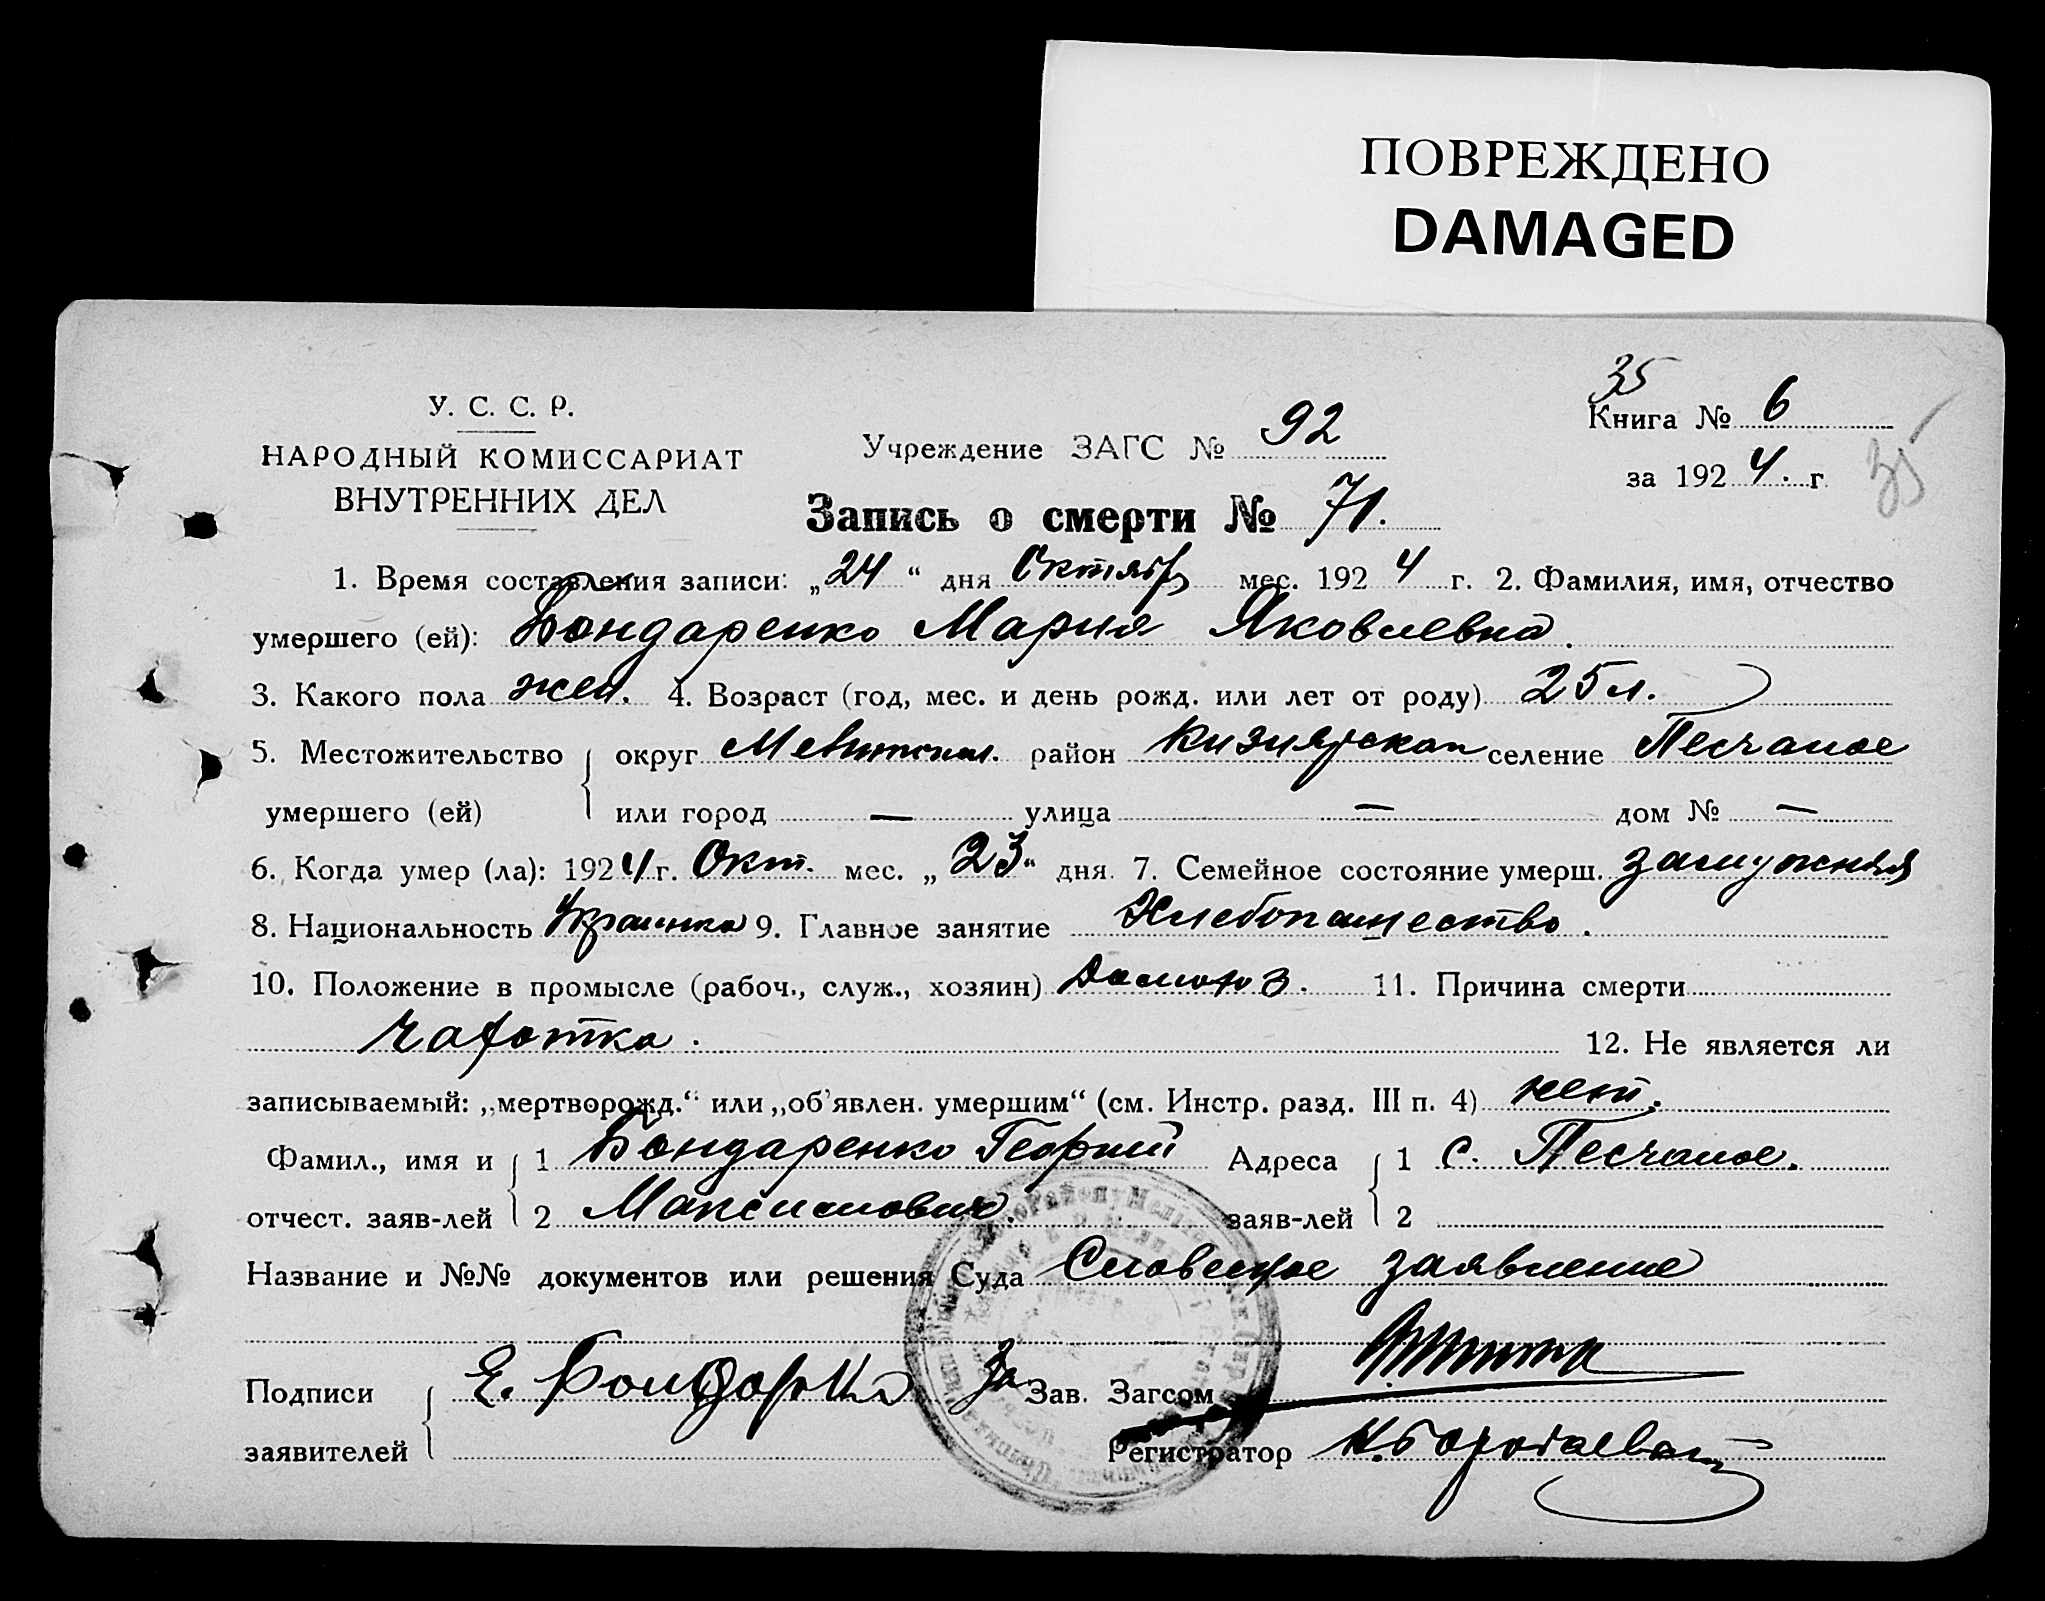 ПОВРЕЖДЕНО
DAMAGED
35
У. С. С. Р.
НАРОДНЫЙ КОМИССАРИАТ
ВНУТРЕННИХ ДЕЛ
Учреждение ЗАГС № 92
Книга № 6
за 1924. г.
35
Запись о смерти № 71.
1. Время составления записи: „24“ дня Октябр мес. 1924 г. 2. Фамилия, имя, отчество
умершего (ей): Бондаренко Мария Яковлевна.
3. Какого пола жен. 4. Возраст (год, мес. и день рожд. или лет от роду) 25 л.
5. Местожительство округ район Кизиярская селение Песчаное
умершего (ей) или город — улица — дом № —
6. Когда умер (ла): 1924 г. Окт. мес. „23“ дня. 7. Семейное состояние умерш. замужняя
8. Национальность Украинка 9. Главное занятие Хлебопашество.
10. Положение в промысле (рабоч., служ., хозяин) Домохоз. 11. Причина смерти
Чахотка.
12. Не является ли
записываемый: „мертворожд.“ или „об'явлен. умершим“ (см. Инстр. разд. III п. 4) нет.
Фамил., имя и 1 Бондаренко Георгий Адреса 1 с. Песчаное.
отчест. заяв-лей 2 Максимович. заяв-лей 2
Название и №№ документов или решения Суда Словесное заявление
Подписи Е. За Зав. Загсом
заявителей Регистратор